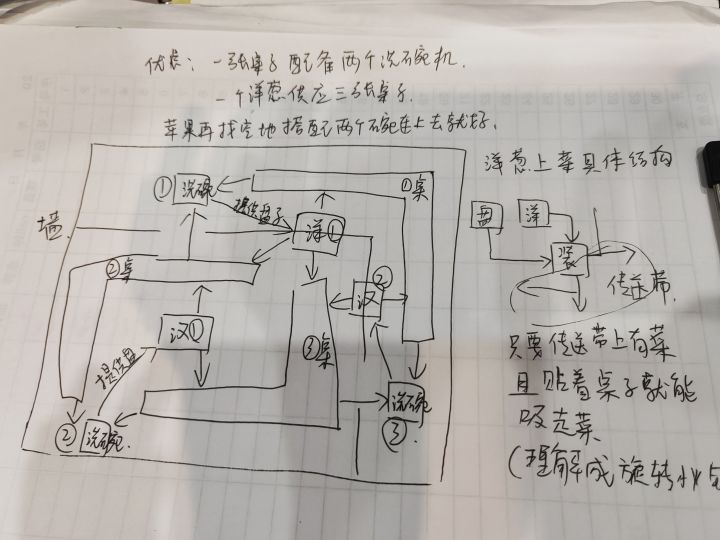 优势：一张桌子配备两个洗碗机.
一个洋葱供应三张桌子.
苹果再找空地搭配两个碗连上去就好.
洋葱上菜具体结构
墙
①洗碗
提供盘子
洋①
①桌
②桌
汉①
提供盘
汉②
③桌
②洗碗
洗碗③
盘
洋
装
传送带.
只要传送带上有菜
且贴着桌子就能
吸走菜
(理解成旋转小